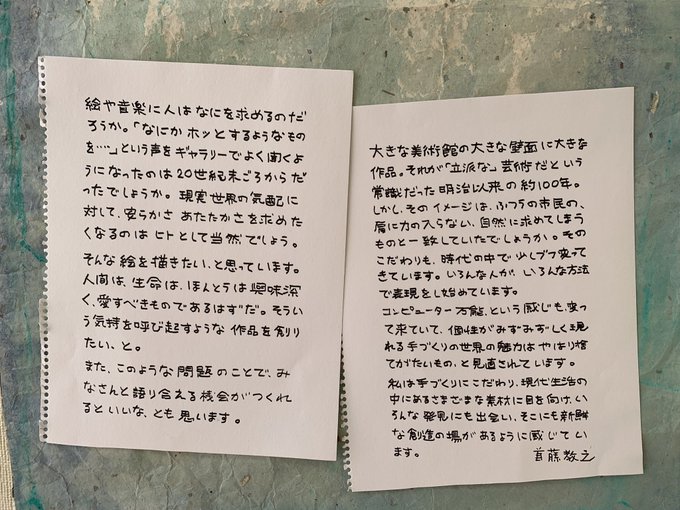 絵や音楽に人はなにを求めるのだ
ろうか。「なにかホッとするようなもの
を……」という声をギャラリーでよく聞くよ
うになったのは20世紀末ごろからだ
ったでしょうか。現実世界の気配に
対して、安らかさ あたたかさを求めた
くなるのはヒトとして当然でしょう。
そんな絵を描きたい、と思っています。
人間は、生命は、ほんとうは興味深
く、愛すべきものであるはずだ。そうい
う気持を呼び起すような作品を創り
たい、と。
また、このような問題のことで、み
なさんと語り合える機会がつくれ
るといいな、とも思います。
大きな美術館の大きな壁面に大きな
作品。それが「立派な」芸術だという
常識だった明治以来の約100年。
しかし、そのイメージは、ふつうの市民の、
肩に力の入らない、自然に求めてしまう
ものと一致していたでしょうか。その
こだわりも、時代の中で少しづつ変って
きています。いろんな人が、いろんな方法
で表現をし始めています。
コンピューター万能、という感じも、変っ
て来ていて、個性がみずみずしく現
れる手づくりの世界の魅力はやはり捨
てがたいもの、と見直されています。
私は手づくりにこだわり、現代生活の
中にあるさまざまな素材に目を向け、い
ろんな発見にも出会い、そこにも新鮮
な創造の場があるように感じてい
ます。 首藤教之